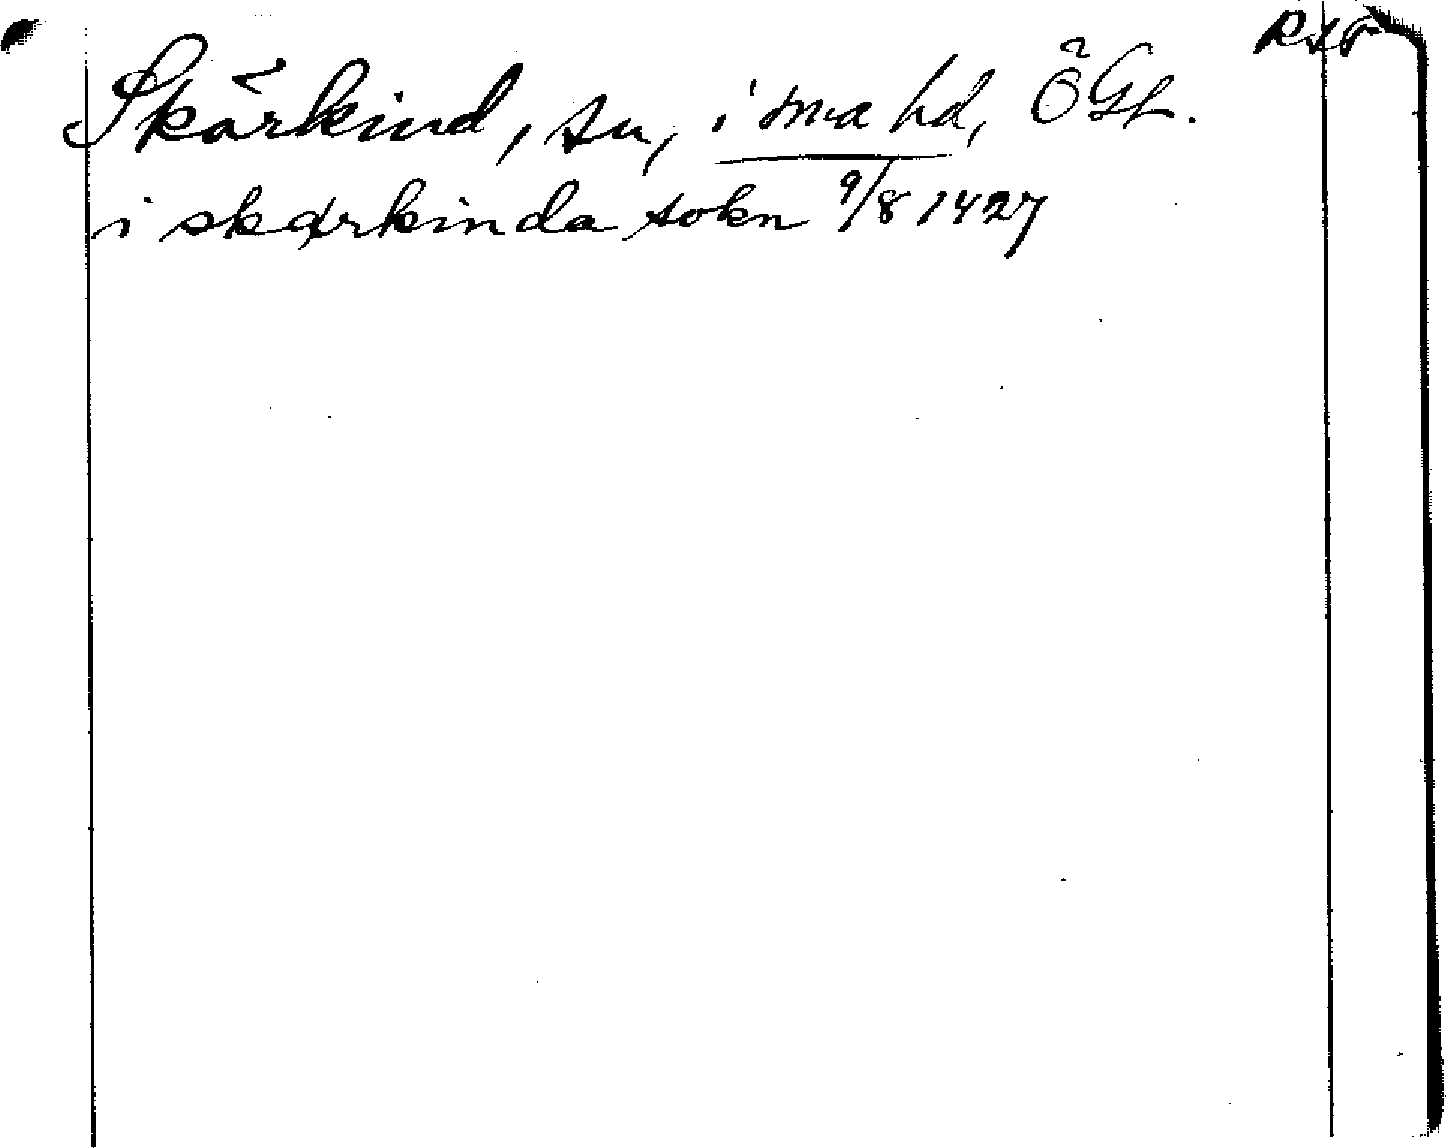 Skärkind, sn, i sma hd, ÖGL.
i skærkinda sokn 9/8 1427